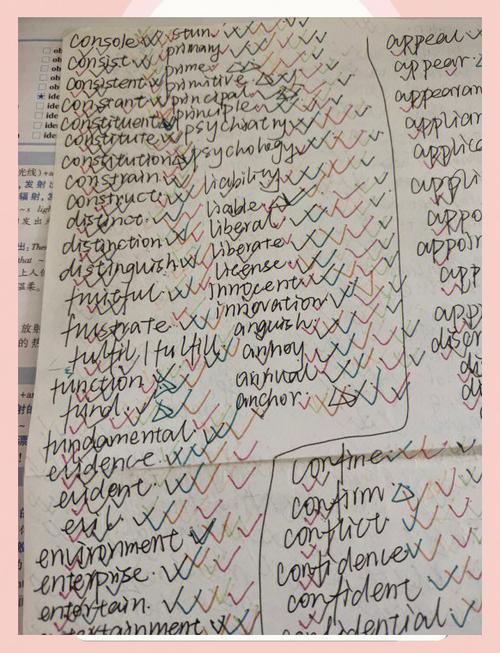 console
consist
consistent
constant
constituent
constitute
constitution
constrain
construct
distinct
distinction
distinguish
fruitful
frustrate
fulfil/fulfill
function
fund
fundamental
evidence
evident
evil
environment
enterprise
entertain
entertainment
stun
primary
prime
primitive
principal
principle
psychiatry
psychology
liability
liable
liberal
liberate
license
innocent
innovation
anguish
annoy
annual
anchor
appeal
appear
appearan
applian
applica
appli
appo
appoin
app
app
discr
di
confine
confirm
conflict
confidence
confident
confidential